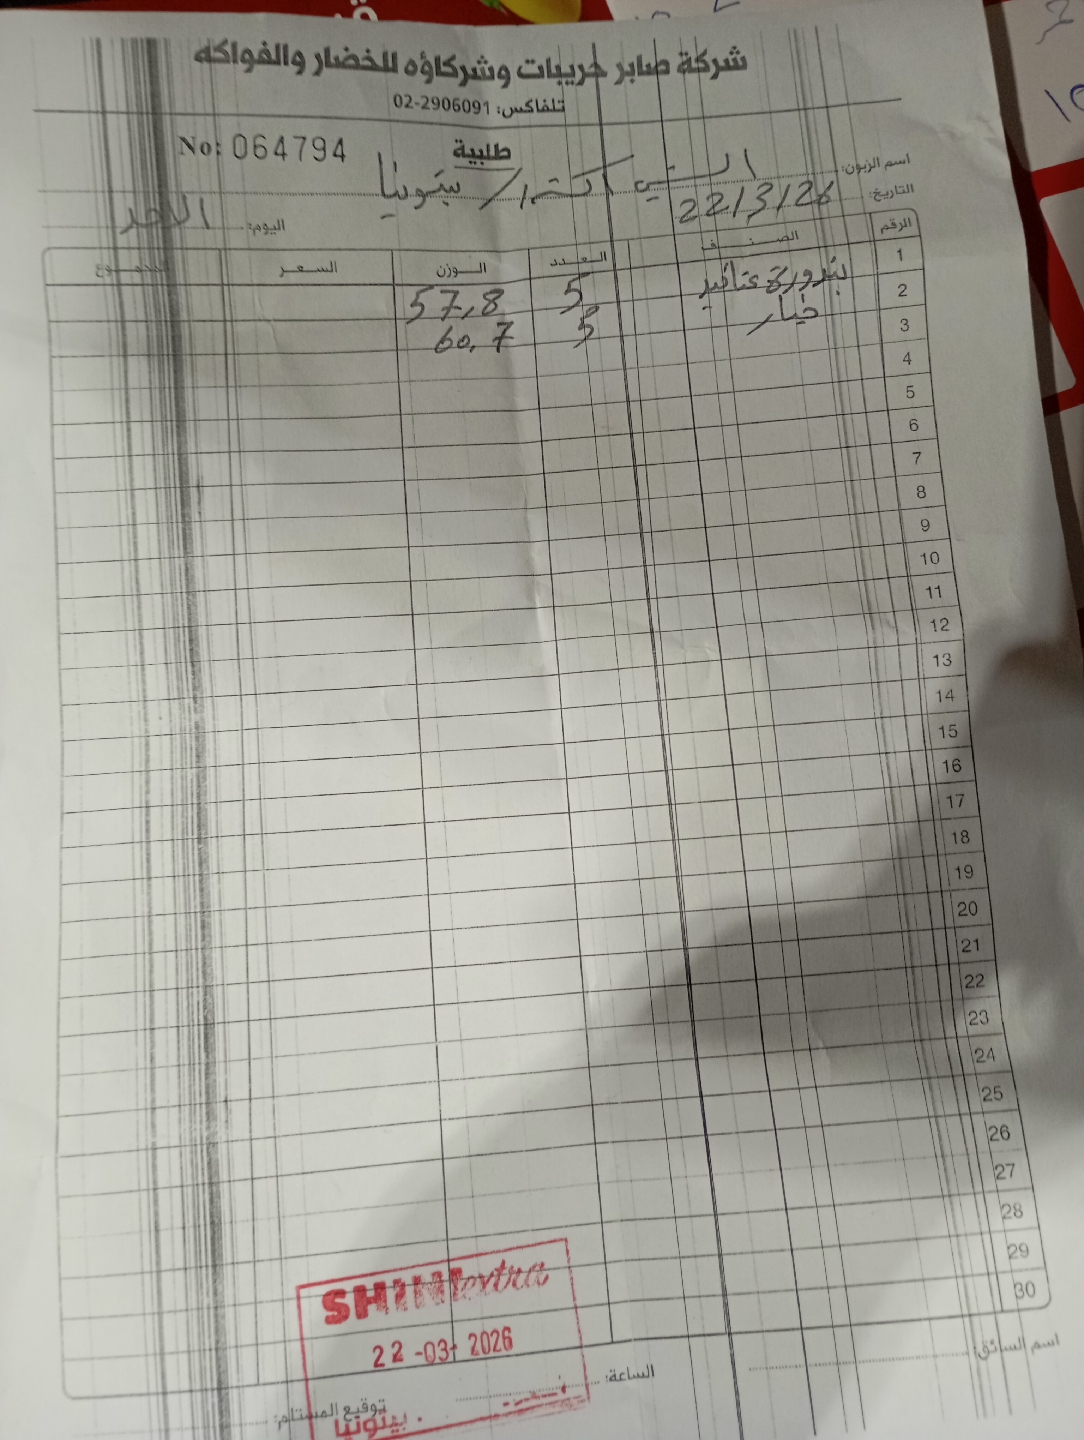 شركة صابر حريبات وشركاؤه للخضار والفواكه
تلفاكس: 02-2906091
No: 064794
طلبية
اسم الزبون: الشني اكسترا/بيتونيا
التاريخ: 22/3/26
اليوم: الاحد
الرقم الصنف العدد الوزن السعر المجموع
1 بندورة عناقيد 5 57,8
2 خيار 5 60,7
3
4
5
6
7
8
9
10
11
12
13
14
15
16
17
18
19
20
21
22
23
24
25
26
27
28
29
30
SHINI extra
22-03-2026
بيتونيا
اسم السائق:
الساعة:
توقيع المستلم: